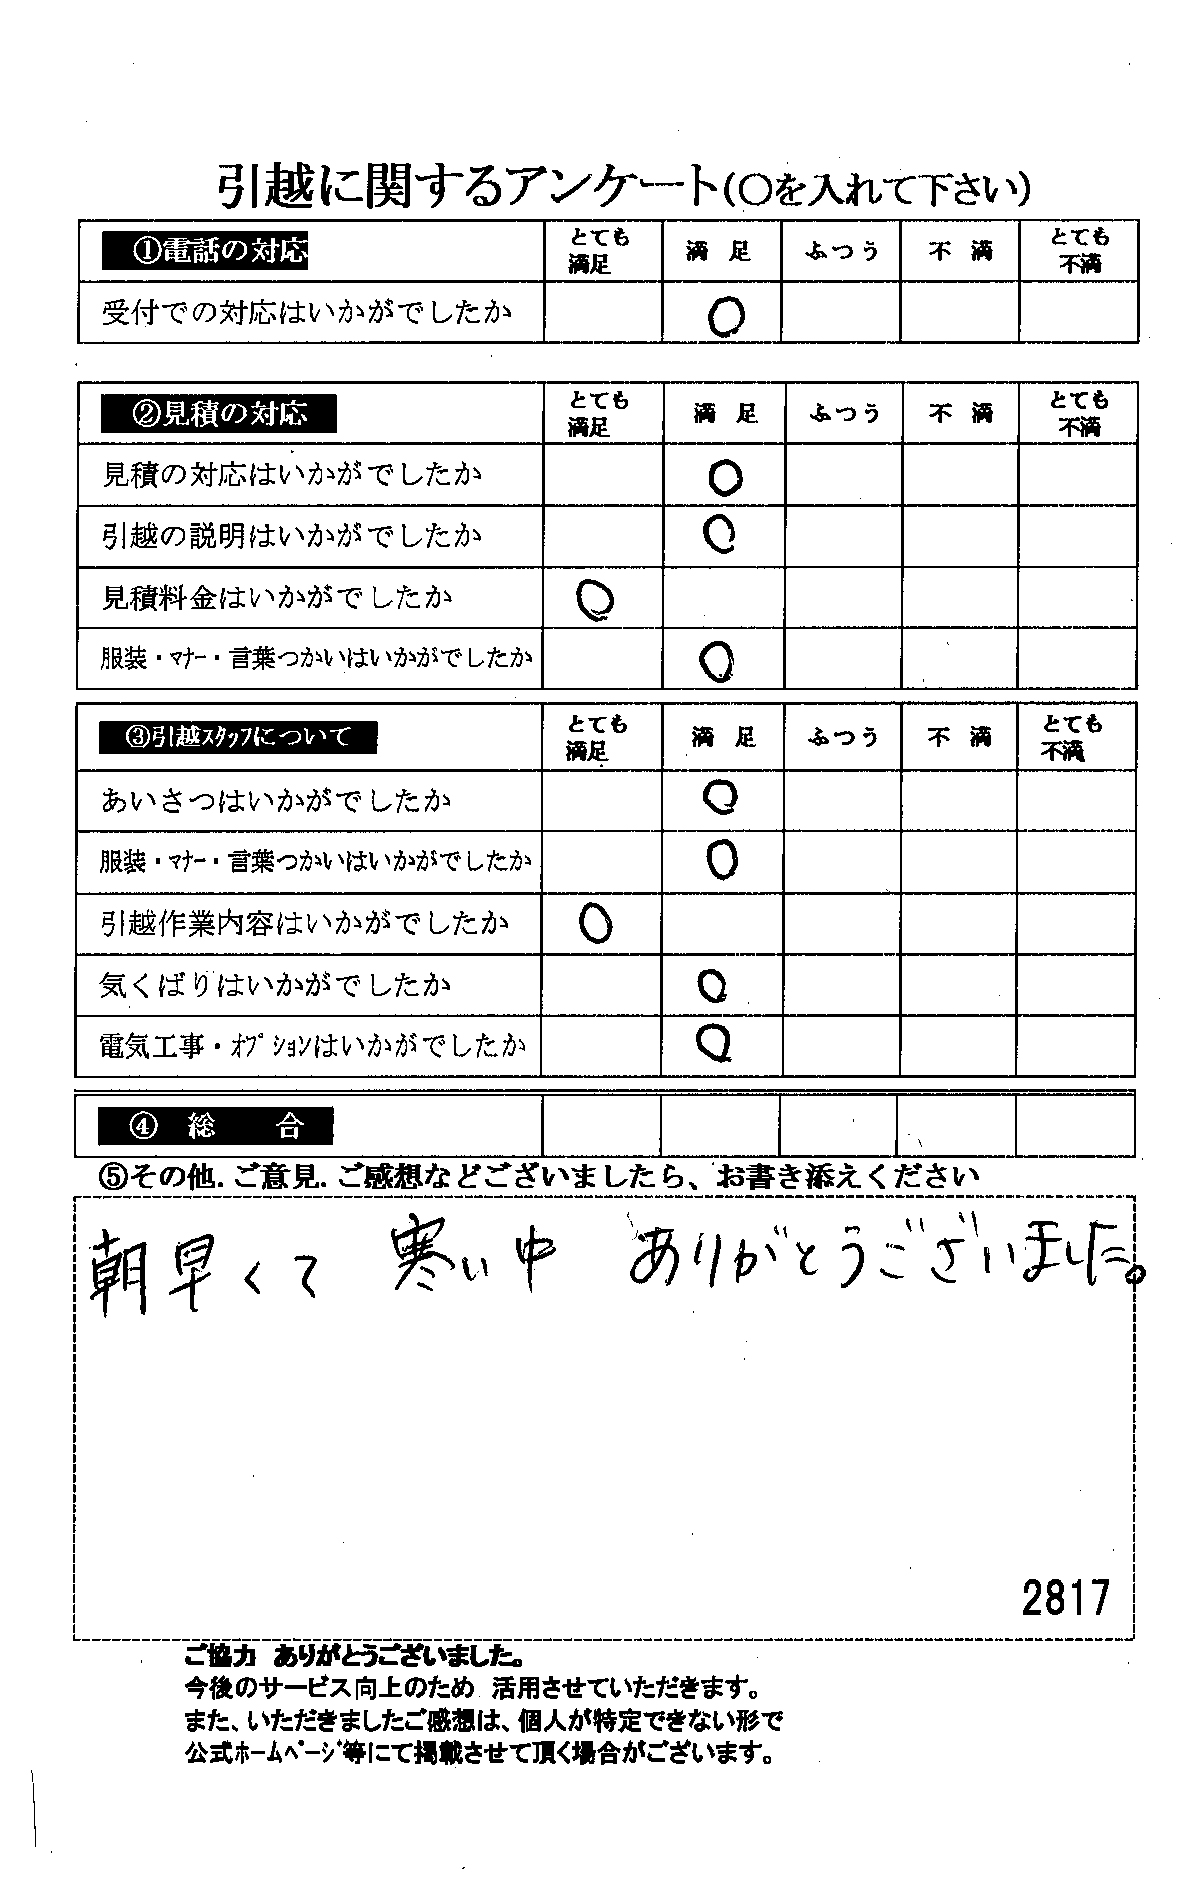 引越に関するアンケート(〇を入れて下さい)
①電話の対応 とても満足 満足 ふつう 不満 とても不満
受付での対応はいかがでしたか 〇
②見積の対応 とても満足 満足 ふつう 不満 とても不満
見積の対応はいかがでしたか 〇
引越の説明はいかがでしたか 〇
見積料金はいかがでしたか 〇
服装・ﾏﾅｰ・言葉つかいはいかがでしたか 〇
③引越ｽﾀｯﾌについて とても満足 満足 ふつう 不満 とても不満
あいさつはいかがでしたか 〇
服装・ﾏﾅｰ・言葉つかいはいかがでしたか 〇
引越作業内容はいかがでしたか 〇
気くばりはいかがでしたか 〇
電気工事・ｵﾌﾟｼｮﾝはいかがでしたか 〇
④ 総 合
⑤その他.ご意見.ご感想などございましたら、お書き添えください
朝早くて 寒い中 ありがとうございました。
2817
ご協力 ありがとうございました。
今後のサービス向上のため 活用させていただきます。
また、いただきましたご感想は、個人が特定できない形で
公式ﾎｰﾑﾍﾟｰｼﾞ等にて掲載させて頂く場合がございます。